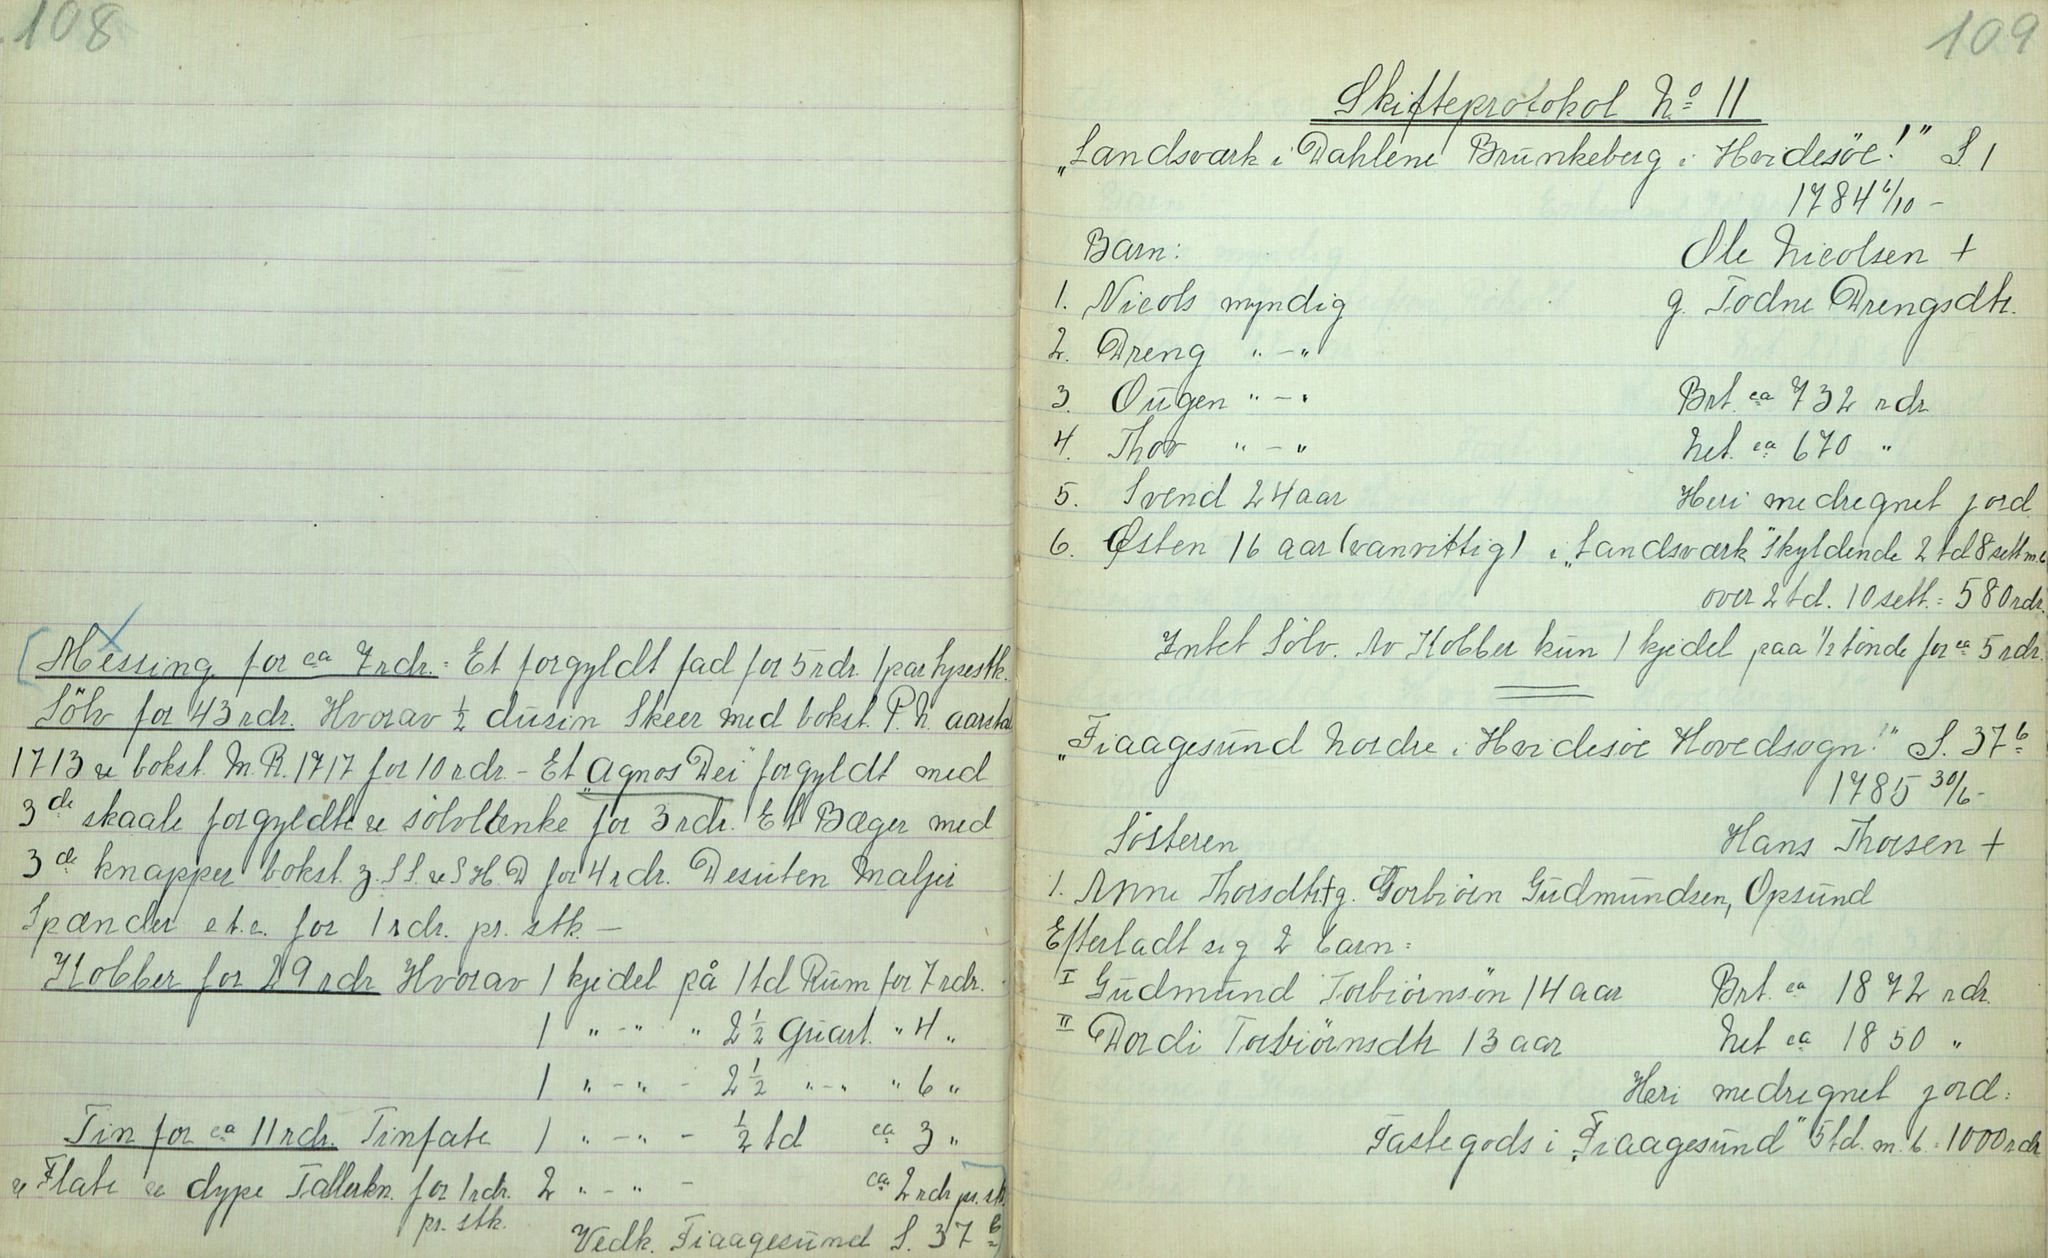 108
Messing for ca 7 rdr. = Et forgyldt fad for 5 rdr. 1 par lysestk.
Sölv for 43 rdr. Hvorav ½ dusin Skeer med bokst. P. N. aarstal
1713 & bokst. M. R. 1717 for 10 rdr. - Et „Agnos Dei" forgyldt med
3de skaale forgyldte & sölvlænke for 3 rdr. Et Bæger med
3de knapper bokst. J. S S. & S H. D for 4 rdr. Desuten Maljer
Spænder e.t.c. for 1 rdr. pr. stk. -
Kobber for 29 rdr Hvorav 1 kjedel på 1 td Rum for 7 rdr.
1 " - " " 2 ½ Quart. " 4 "
1 " - " - 2 ½ " - " " 6 "
Tin for ca 11 rdr. Tinfate 1 " - " - ½ td ca 3 "
& Flate & dype Tallerkn. for 1 rdr. 2 " - " - ca 2 rdr pr. stk.
pr. stk.
Vedk. Fiaagesund S. 37 b
109
Skifteprotokol No 11
„Landsværk i Dahlene Brunkeberg i Hvidesöe!" S. 1
1784 6/10 -
Barn: Ole Nicolsen +
1. Nicols myndig g. Todne Drengsdtr.
2. Dreng " - "
3. Ougen " - " Brt. ca 732 rdr
4. Thor " - " Net. ca 670 "
5. Svend 24 aar Heri medregnet jord
6. Østen 16 aar (vanvittig) i „Landsværk" skyldende 2 td 8 sett m.b
over 2 td. 10 sett. = 580 rdr.
Intet Sölv. Av Kobber kun 1 kjedel paa ½ tönde for ca 5 rdr.
„Fiaagesund Nordre i Hvidesöe Hovedsogn!" S. 37 b
1785 30/6 -
Søsteren Hans Thorsen +
1. Anne Thorsdtr. + g. Torbiörn Gudmundsen, Opsund
Efterladt sig 2 barn:
I Gudmund Torbiörnsön 14 aar Brt. ca 1872 rdr.
II Dordi Torbiörnsdtr 13 aar Net ca 1850 "
Heri medregnet jord:
Fastegods i „Fiaagesund" 5 td. m. b. = 1000 rdr